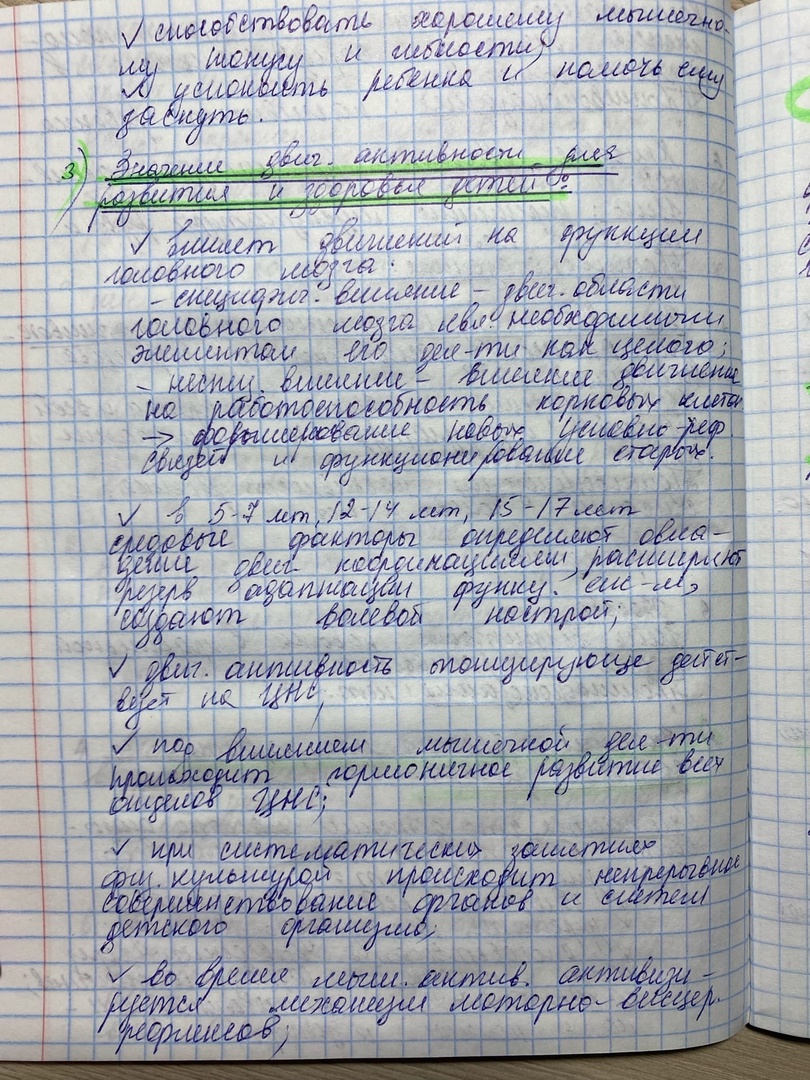 ✓ способствовать хорошему мышечно-
му тонусу и гибкости;
✓ успокоить ребенка и помочь ему
заснуть.
3) Значение двиг. активности для
развития и здоровья детей:
✓ влияет движений на функции
головного мозга:
- специфич. влияние - двиг. области
головного мозга явл. необходимым
элементом его деят-ти как целого;
- неспец. влияние - влияние движения
на работоспособность корковых клеток
→ формирование новых условно-реф.
связей и функционирование старых.
✓ в 5-7 лет, 12-14 лет, 15-17 лет
средовые факторы определяют овла-
дение двиг. координациями, расширяют
резерв адаптации функц. сис-м,
создают волевой настрой;
✓ двиг. активность тонизирующе дейст-
вует на ЦНС;
✓ под влиянием мышечной деят-ти
происходит гармоничное развитие всех
отделов ЦНС;
✓ при систематических занятиях
физ. культурой происходит непрерывное
совершенствование органов и систем
детского организма;
✓ во время мыш. актив. активизи-
руется механизм моторно-висцер.
рефлексов;